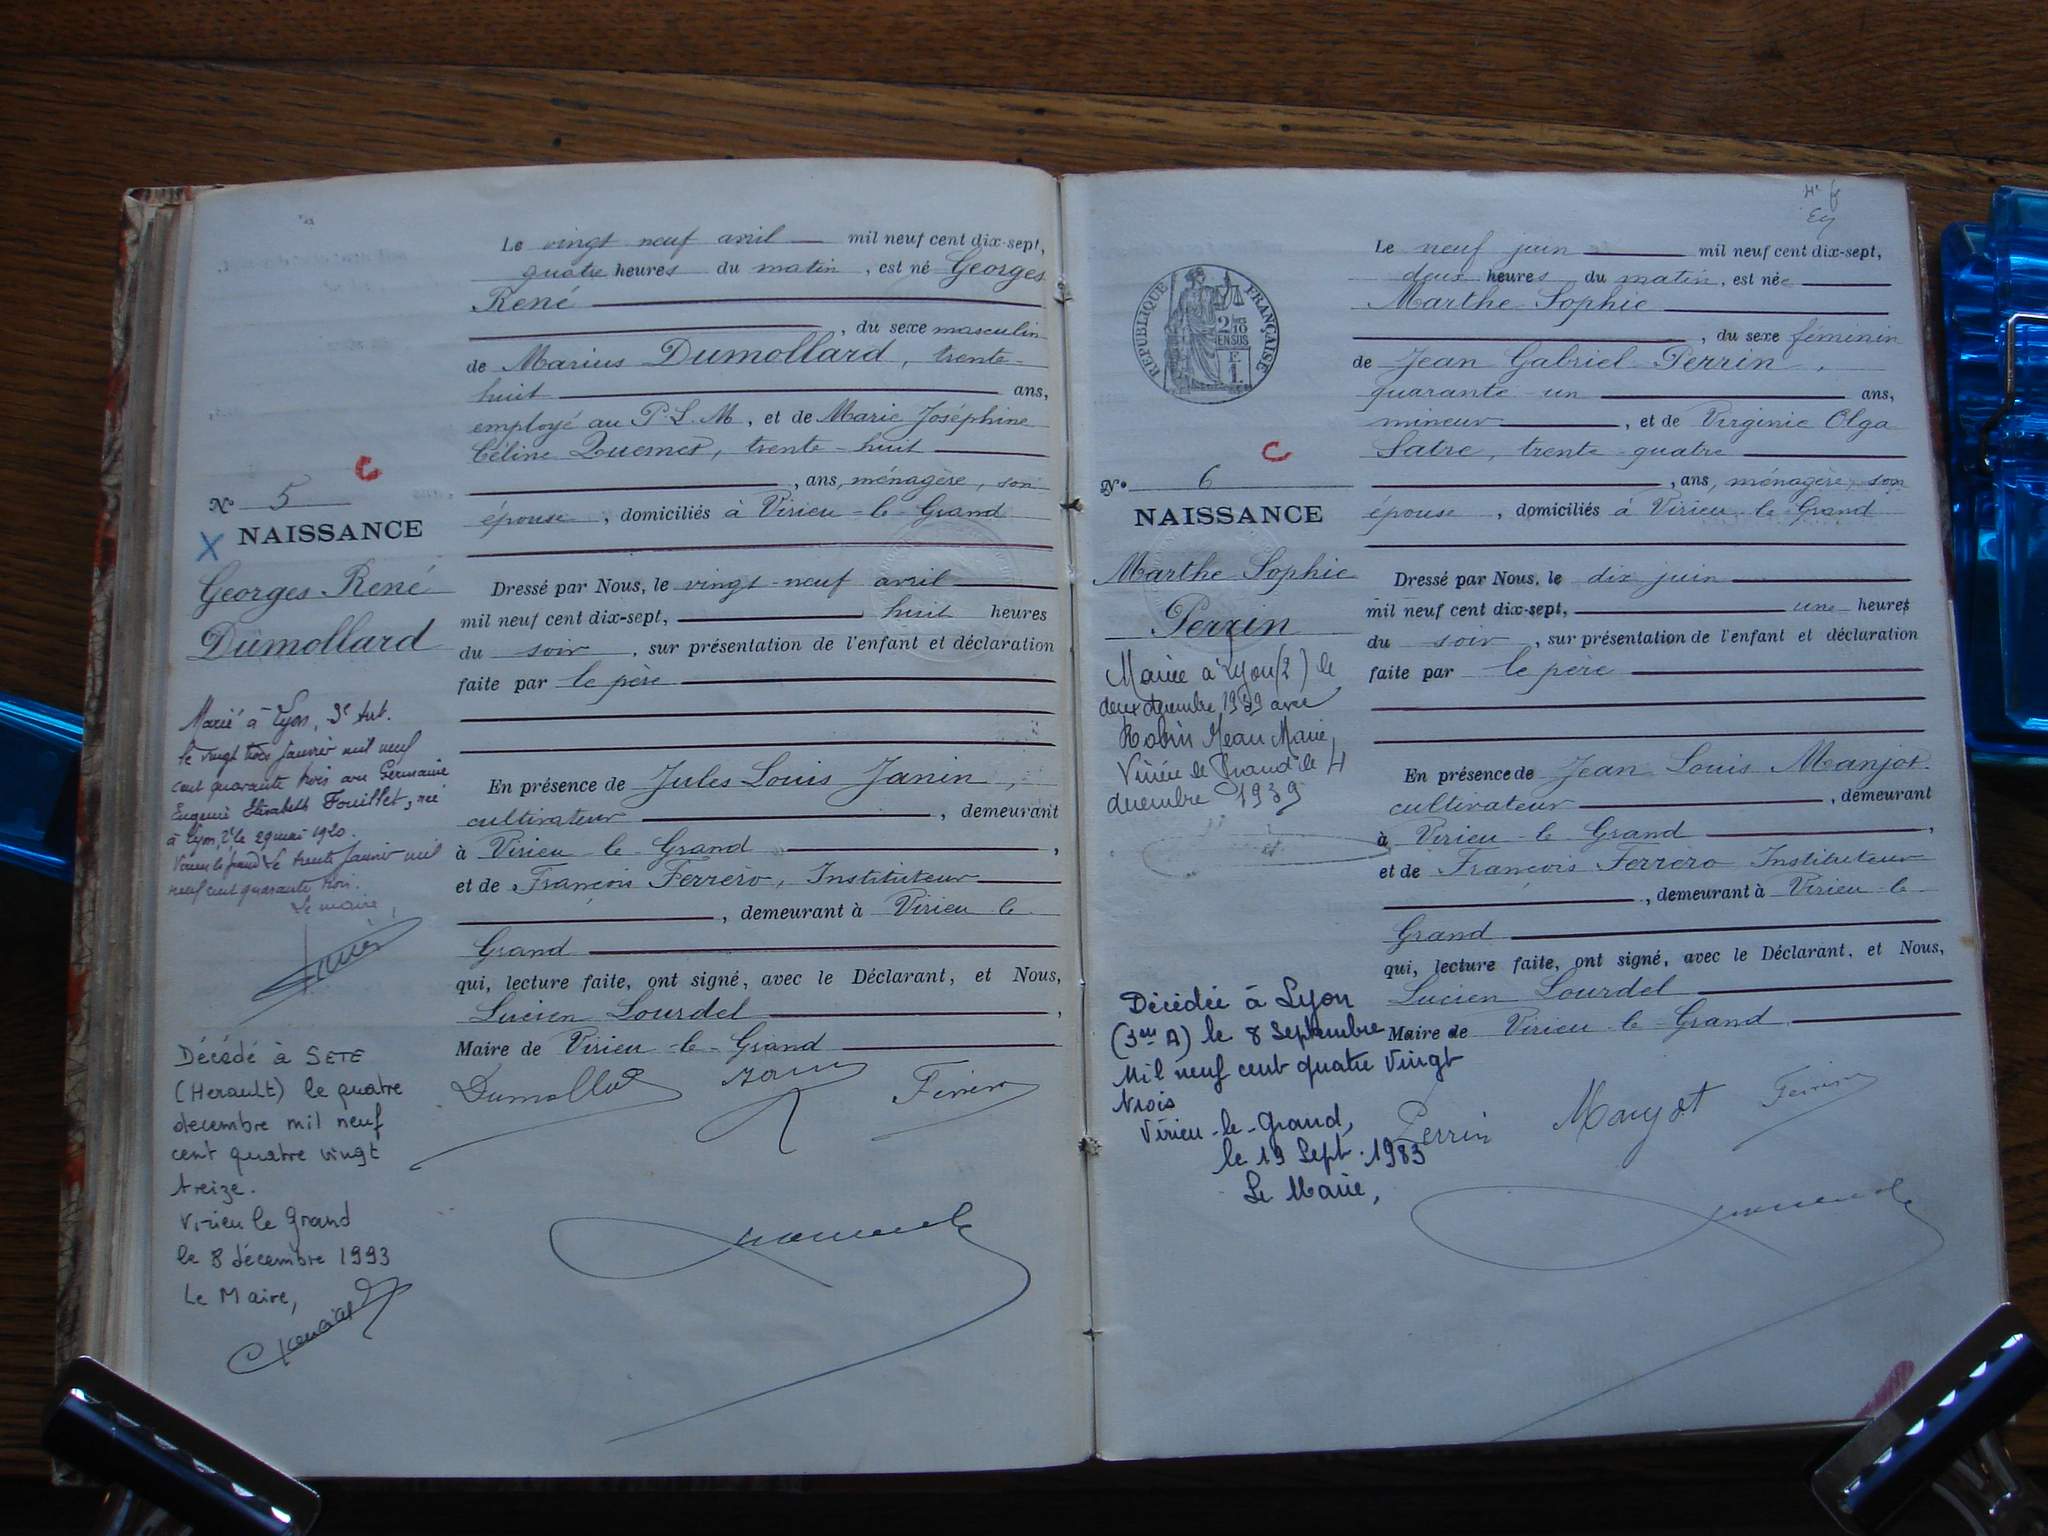 Le vingt neuf avril mil neuf cent dix-sept,
quatre heures du matin, est né Georges
René
, du sexe masculin
de Marius Dumollard, trente-
huit ans,
employé au P.L.M, et de Marie Joséphine
Céline trente-huit
, ans, ménagère, son
épouse, domiciliés à Virieu-le-Grand
Dressé par Nous, le vingt-neuf avril
mil neuf cent dix-sept, huit heures
du soir, sur présentation de l'enfant et déclaration
faite par le père
En présence de Jules Louis Janin,
cultivateur, demeurant
à Virieu le Grand,
et de François Ferrero, Instituteur
, demeurant à Virieu le
Grand
qui, lecture faite, ont signé, avec le Déclarant, et Nous,
Lucien Lourdel,
Maire de Virieu-le-Grand
Dumollard
Ferrero
C
No 5
X NAISSANCE
Georges René
Dumollard
Marié à Lyon, 3e Art.
le vingt trois janvier mil neuf
cent quarante trois avec Germaine
Eugenie Elisabeth Fouillet, née
à Lyon, 2e le 29 mai 1920.
Virieu le grand le trente janvier mil
neuf cent quarante trois.
Le maire,
Décédé à SETE
(Herault) le quatre
decembre mil neuf
cent quatre vingt
treize.
Virieu le Grand
le 8 décembre 1993
Le Maire,
Le neuf juin mil neuf cent dix-sept,
deux heures du matin, est née
Marthe Sophie
, du sexe féminin
de Jean Gabriel Perrin,
quarante-un ans,
mineur, et de Virginie Olga
Satre, trente-quatre
, ans, ménagère, son
épouse, domiciliés à Virieu-le-Grand
Dressé par Nous, le dix juin
mil neuf cent dix-sept, une heures
du soir, sur présentation de l'enfant et déclaration
faite par le père
En présence de Jean Louis Manjot.
cultivateur, demeurant
à Virieu-le-Grand,
et de François Ferrero Instituteur
, demeurant à Virieu-le-
Grand
qui, lecture faite, ont signé, avec le Déclarant, et Nous,
Lucien Lourdel
Maire de Virieu-le-Grand
Perrin Manjot Ferrero
RÉPUBLIQUE FRANÇAISE
2 10
EN SUS
F.
1.
C
No 6
NAISSANCE
Marthe Sophie
Perrin
Mariée à Lyon (2) le
deux decembre 1939 avec
Robin Jean Marie,
Virieu le Grand le 4
decembre 1939
Décédée à Lyon
(3me A) le 8 Septembre
Mil neuf cent quatre Vingt
trois
Virieu-le-Grand,
le 19 Sept. 1983
Le Maire,